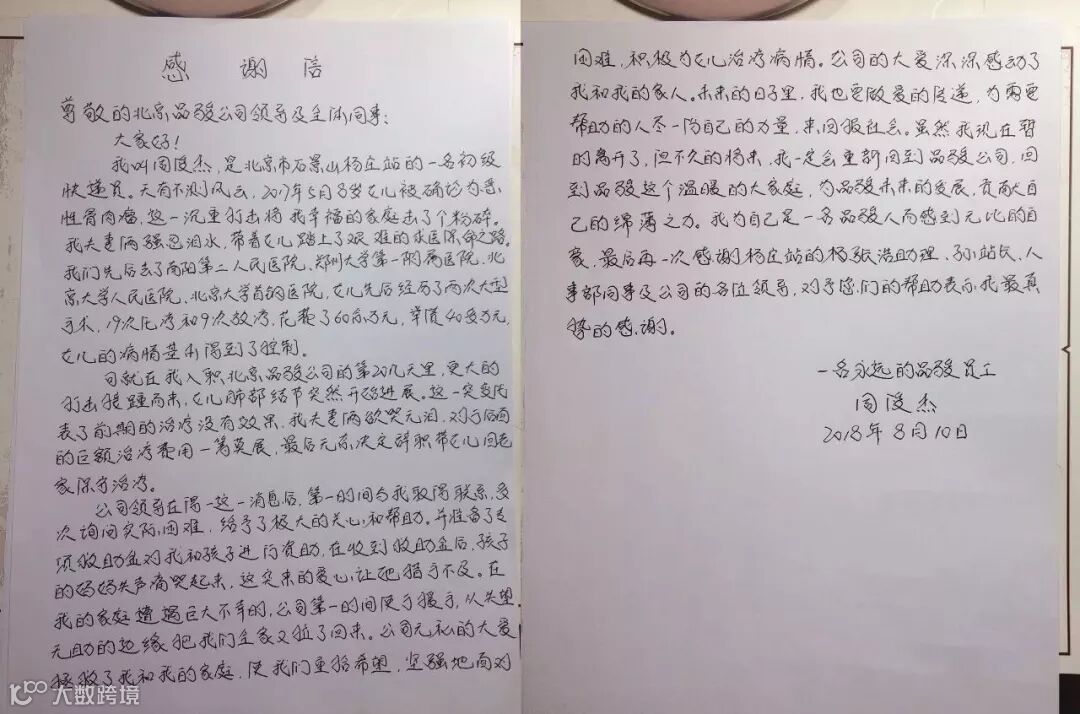 感谢信
尊敬的北京品骏公司领导及全体同事:
大家好!
我叫周俊杰,是北京市石景山杨庄站的一名初级
快递员。天有不测风云,2017年5月8岁女儿被确诊为恶
性骨肉瘤,这一沉重打击将我幸福的家庭击了个粉碎。
我夫妻俩强忍泪水,带着女儿踏上了艰难的求医保命之路。
我们先后去了南阳第二人民医院,郑州大学第一附属医院,北
京大学人民医院,北京大学首钢医院,女儿先后经历了两次大型
手术,19次化疗和9次放疗,花费了60余万元,举债40多万元,
女儿的病情基本得到了控制。
可就在我入职北京品骏公司的第20几天里,更大的
打击接踵而来,女儿肺部结节突然开始进展。这一突变代
表了前期的治疗没有效果,我夫妻俩欲哭无泪,对于后面
的巨额治疗费用一筹莫展,最后无奈决定辞职带女儿回老
家保守治疗。
公司领导在得一这一消息后,第一时间与我取得联系,多
次询问实际困难,给予了极大的关心和帮助。并准备了专
项救助金对我和孩子进行资助,在收到救助金后,孩子
的妈妈失声痛哭起来,这突来的爱心让她措手不及。在
我的家庭遭遇巨大不幸的,公司第一时间便于援手,从失望
无助的边缘把我们全家又拉了回来。公司无私的大爱
拯救了我和我的家庭,使我们重拾希望,坚强地面对
困难,积极为女儿治疗病情。公司的大爱深深感动了
我和我的家人。未来的日子里,我也要做爱的传递,为需要
帮助的人尽一份自己的力量,来回报社会。虽然我现在暂
时离开了,但不久的将来,我一定会重新回到品骏公司,回
到品骏这个温暖的大家庭,为品骏未来的发展,贡献自
己的绵薄之力。我为自己是一名品骏人而感到无比的自
豪,最后再一次感谢杨庄站的杨振浩助理、孙站长,人
事部同事及公司的各位领导,对于您们的帮助表示我最真
挚的感谢。
一名永远的品骏员工
周俊杰
2018年8月10日
大数跨境